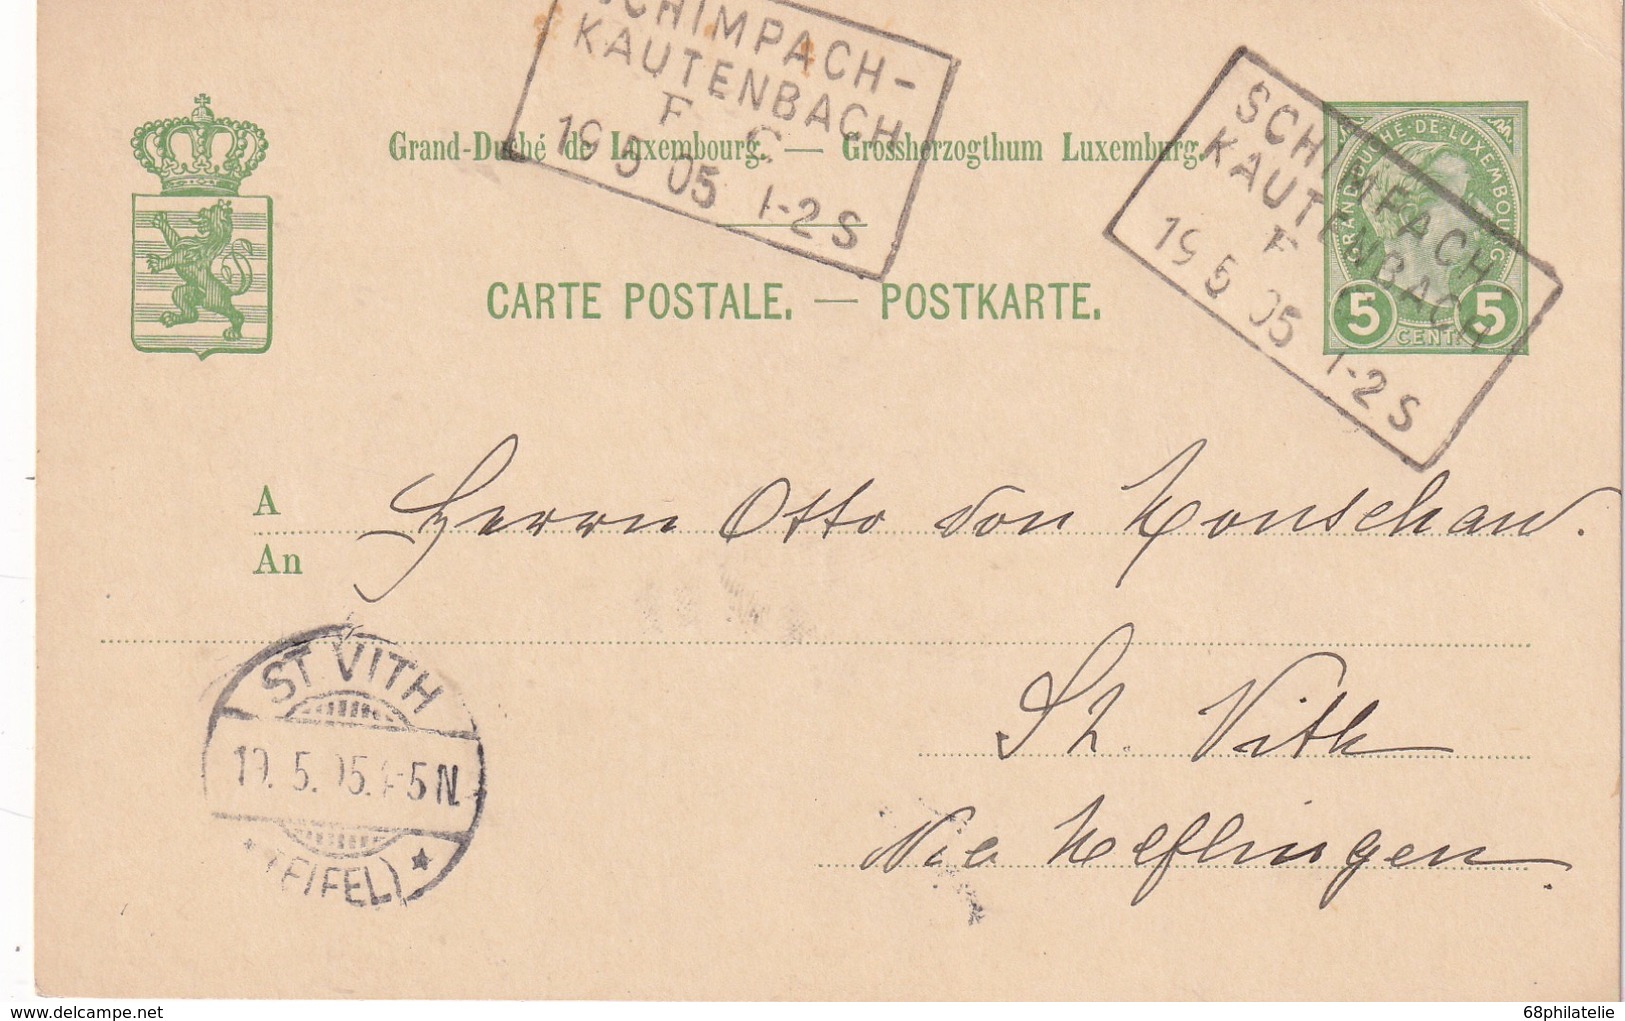 SCHIMPACH-
KAUTENBACH
F C
19 5 05 1-2 S
SCHIMPACH-
KAUTENBACH
F
19 5 05 1-2 S
Grand-Duché de Luxembourg. — Grossherzogthum Luxemburg.
GRAND-DUCHÉ-DE-LUXEMBOURG
5 CENT. 5
CARTE POSTALE. — POSTKARTE.
A
An
Herrn Otto von Monschaw.
St. Vith
Via
ST VITH
19. 5. 05. 4-5 N.
* (EIFEL) *
delcampe.net
68philatelie